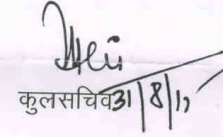 कुलसचिव 31/8/17